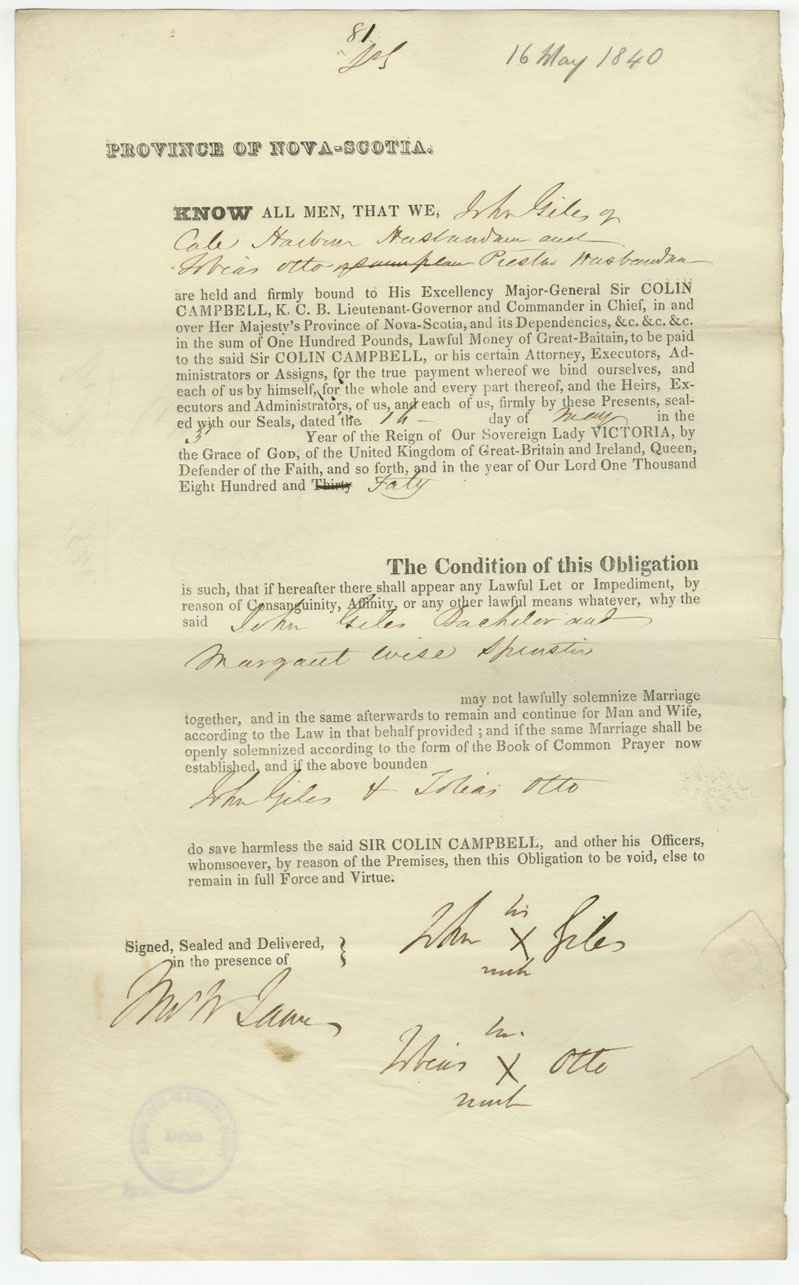 81
16 May 1840
PROVINCE OF NOVA-SCOTIA.
KNOW ALL MEN, THAT WE, John Giles of
Cole Harbour Husbandman and
Tobias Otto of same place Preston Husbandman
are held and firmly bound to His Excellency Major-General Sir COLIN
CAMPBELL, K. C. B. Lieutenant-Governor and Commander in Chief, in and
over Her Majesty's Province of Nova-Scotia, and its Dependencies, &c. &c. &c.
in the sum of One Hundred Pounds, Lawful Money of Great-Baitain, to be paid
to the said Sir COLIN CAMPBELL, or his certain Attorney, Executors, Ad-
ministrators or Assigns, for the true payment whereof we bind ourselves, and
each of us by himself, for the whole and every part thereof, and the Heirs, Ex-
ecutors and Administrators, of us, and each of us, firmly by these Presents, seal-
ed with our Seals, dated the 16 day of May in the
3 Year of the Reign of Our Sovereign Lady VICTORIA, by
the Grace of GOD, of the United Kingdom of Great-Britain and Ireland, Queen,
Defender of the Faith, and so forth, and in the year of Our Lord One Thousand
Eight Hundred and Thirty Forty
The Condition of this Obligation
is such, that if hereafter there shall appear any Lawful Let or Impediment, by
reason of Consanguinity, Affinity, or any other lawful means whatever, why the
said John Giles Bachelor and
Margaret Wise Spinster
may not lawfully solemnize Marriage
together, and in the same afterwards to remain and continue for Man and Wife,
according to the Law in that behalf provided ; and if the same Marriage shall be
openly solemnized according to the form of the Book of Common Prayer now
established, and if the above bounden
John Giles & Tobias Otto
do save harmless the said SIR COLIN CAMPBELL, and other his Officers,
whomsoever, by reason of the Premises, then this Obligation to be void, else to
remain in full Force and Virtue.
Signed, Sealed and Delivered,
in the presence of
his
John X Giles
mark
his
Tobias X Otto
mark